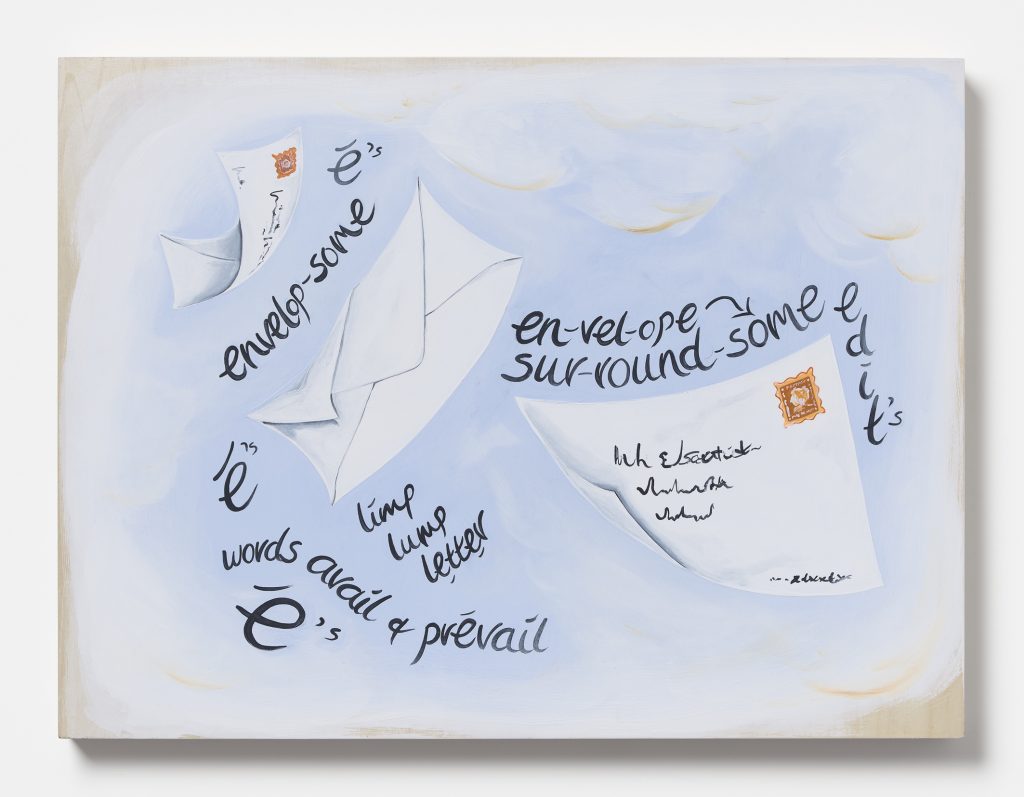 ē's
envelop-sōme
en-vel-ope
sur-round-sōme
edit's
ē's
līmp
lump
lẹttẹr
words avail & prēvail
ē's